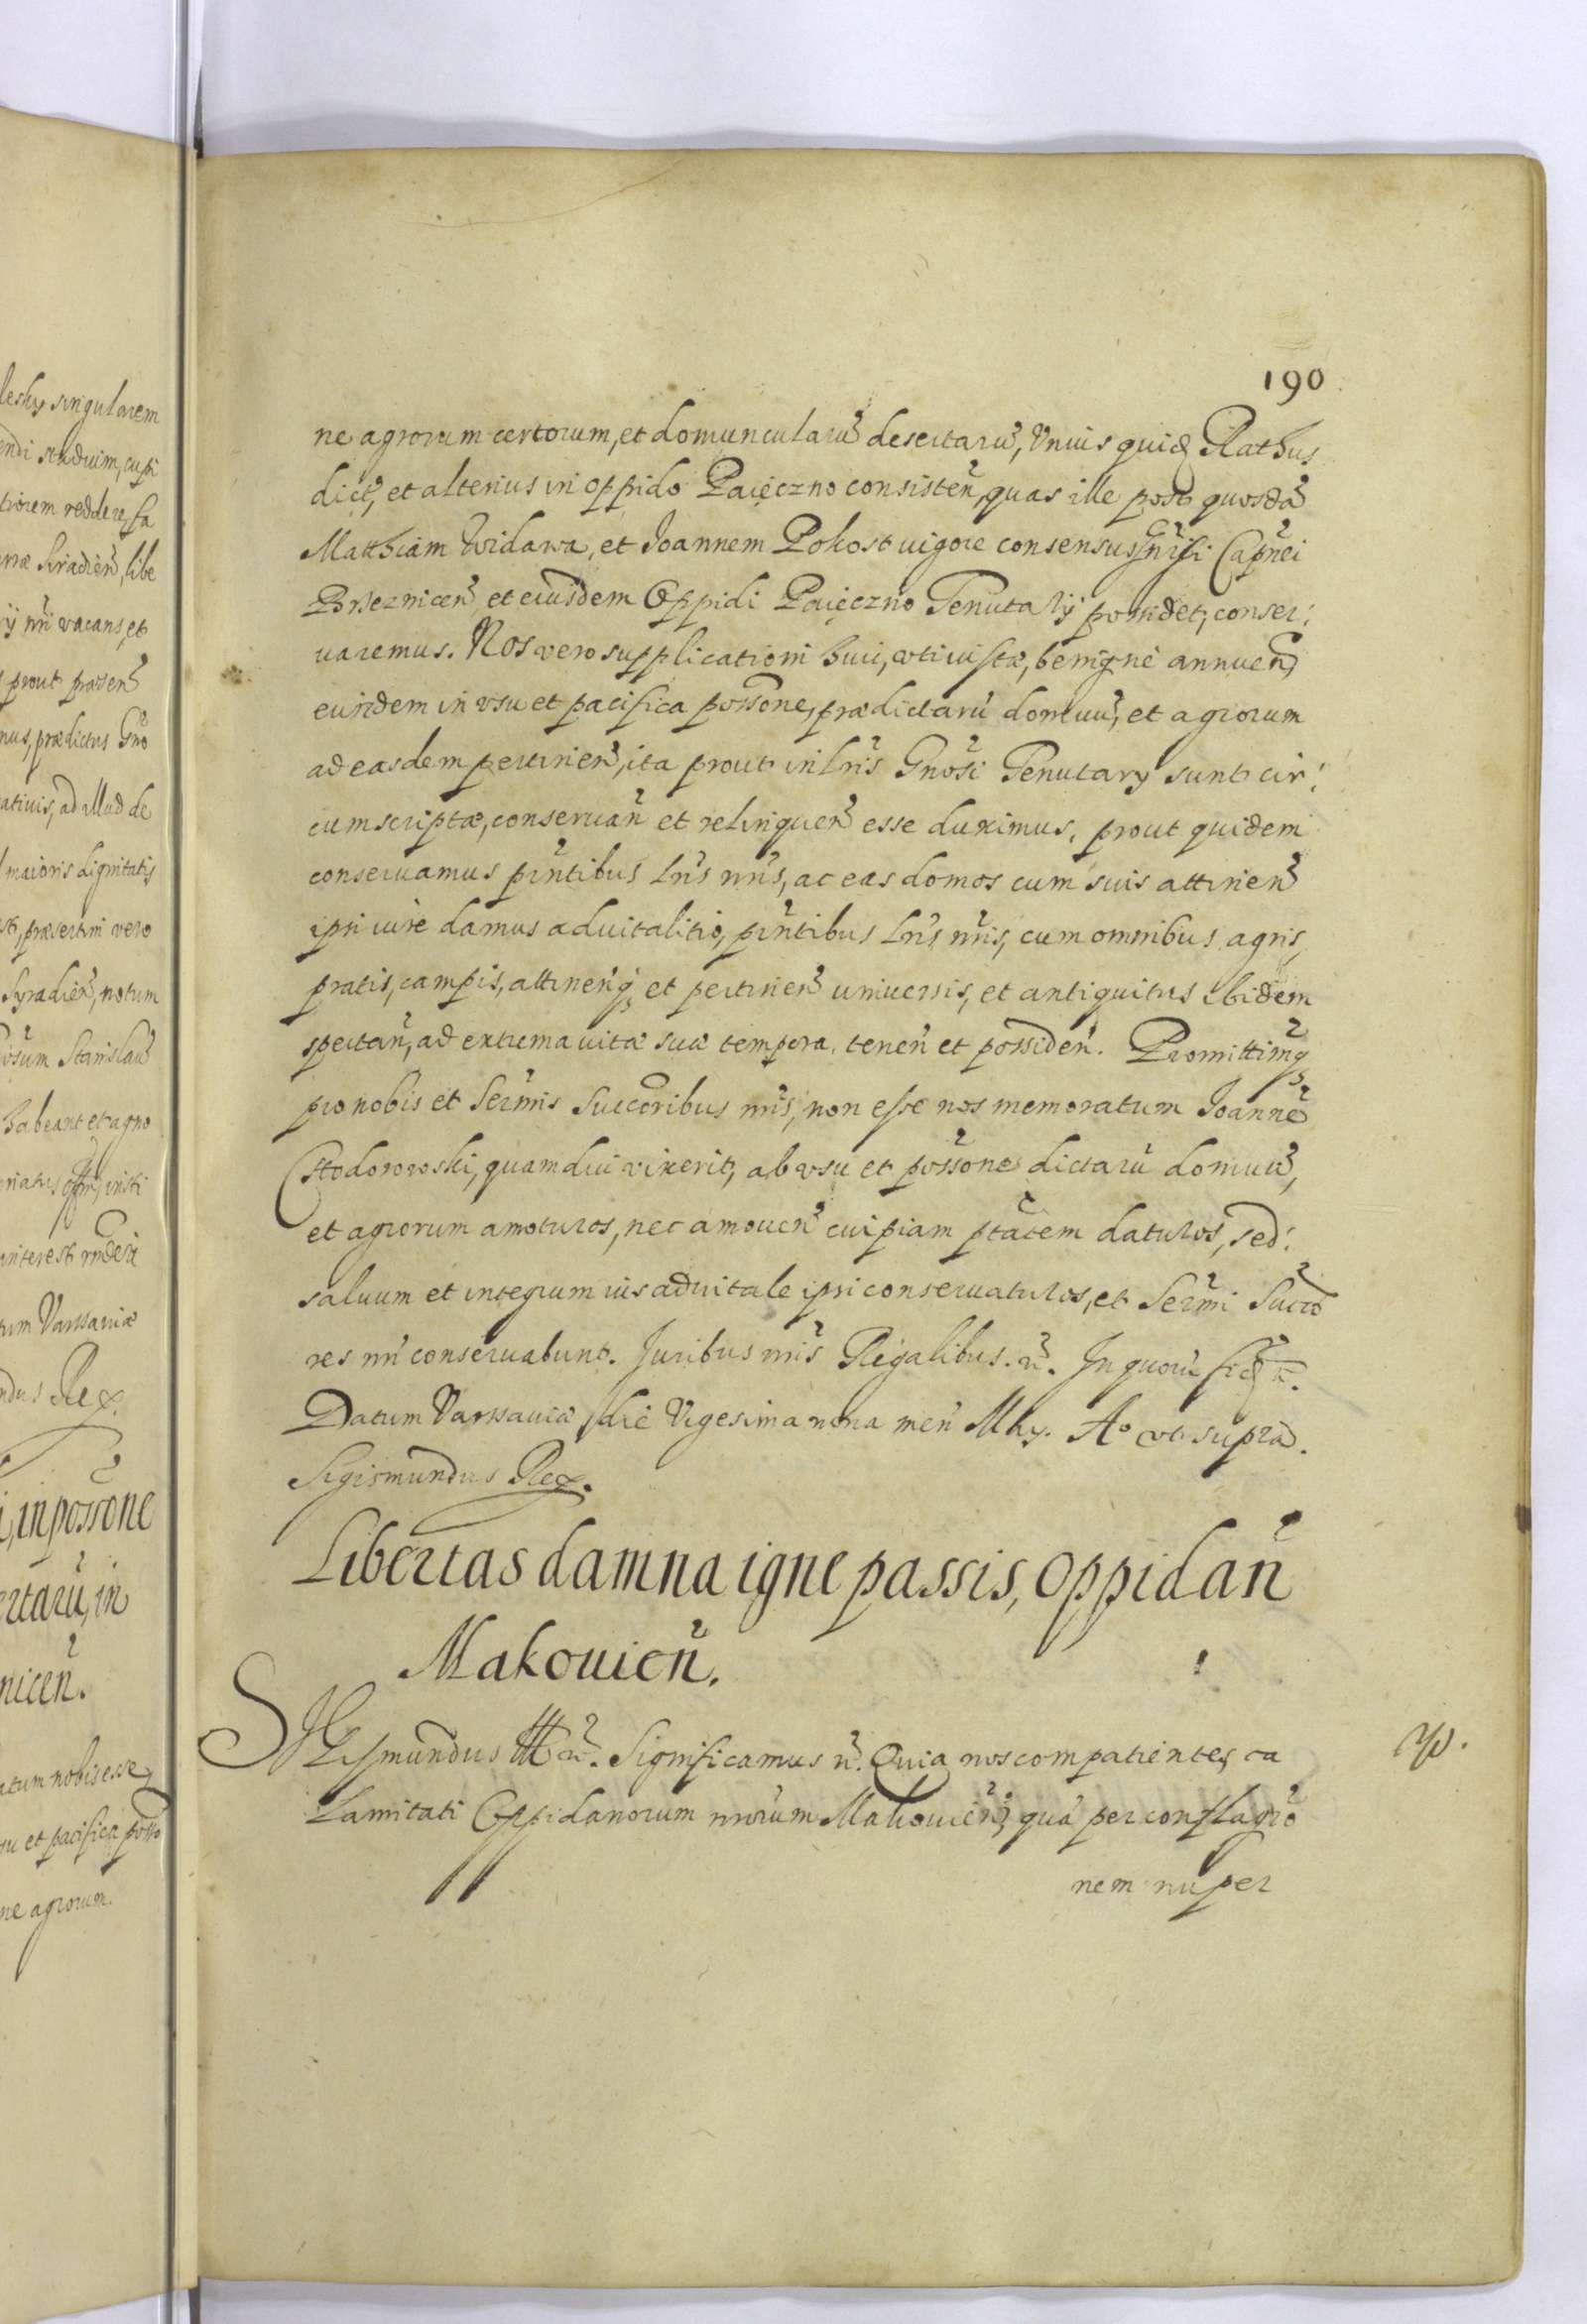 190
ne agrorum certorum, et domuncularũ desertarũ, Vnius quidẽ Rathus
dictẽ, et alterius in oppido Paięczno consisteñ, quas ille post quosdã
Matthiam Widawa, et Joannem Pokost uigore consensus Gñrsi Capñei
Brzeznicen̄ et eiusdem Oppidi Paięczno Tenutarij possidet, conser:
uaremus. Nos vero supplicationi huic, vti iustæ, benignè annuen̄,
eundem in vsu et pacifica possone, prædictarũ domuũ, et agrorum
ad easdem pertinen̄, ita prout in Lr̃is Gnõsi Tenutarÿ sunt cir:
cumscriptæ, conseruan̄ et relinquen̄ esse duximus, prout quidem
conseruamus pñtibus Lr̃is nr̃is, ac eas domos cum suis attinen̄
ipsi iure damus aduitalitio, pñtibus Lr̃is nr̃is, cum omnibus agris,
pratis, campis, attinen̄q; et pertinen̄ uniuersis, et antiquitus ibidem
spectan̄, ad extrema uitæ suæ tempora, tenen̄ et possiden̄. Promittimq;
pro nobis et Serm̃is Succoribus nr̃is, non esse nos memoratum Joannẽ
Chodorowski, quamdiu vixerit, ab vsu et possone dictarũ domuũ,
et agrorum amoturos, nec amouen̄ cuipiam ptãtem daturos, sed:
saluum et integrum ius aduitale ipsi conseruaturos, et Serm̃i Succo
res nr̃i conseruabunt. Juribus nr̃is Regalibus. ẽ. In quorũ fidẽ ẽ.
Datum Varssauiæ, die Vigesima nona men̄ May. Aº vt supra.
Sigismundus Rex.
Libertas damna igne passis, oppidan̄
Makouien̄.
SIgismundus III ẽ. Significamus ẽ. Quia nos compatientes ca
lamitati Oppidanorum nr̃orum Makouien̄, quã per conflagrõ
nem nuper